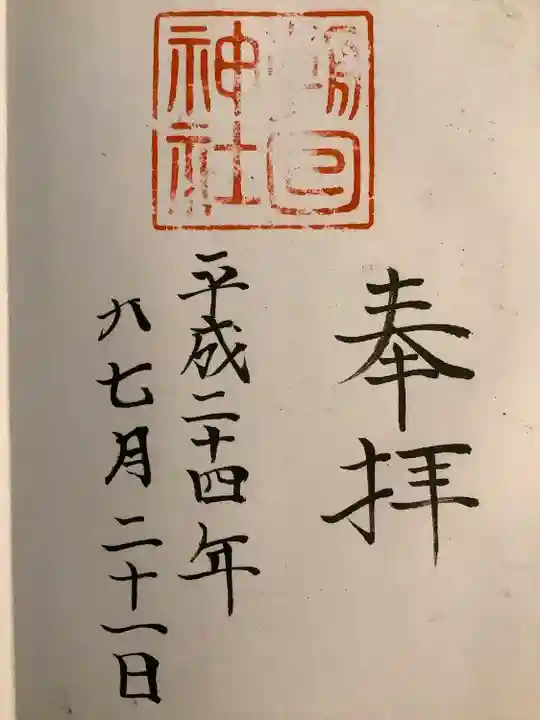 奉拝
神社
平成二十四年
七月二十一日